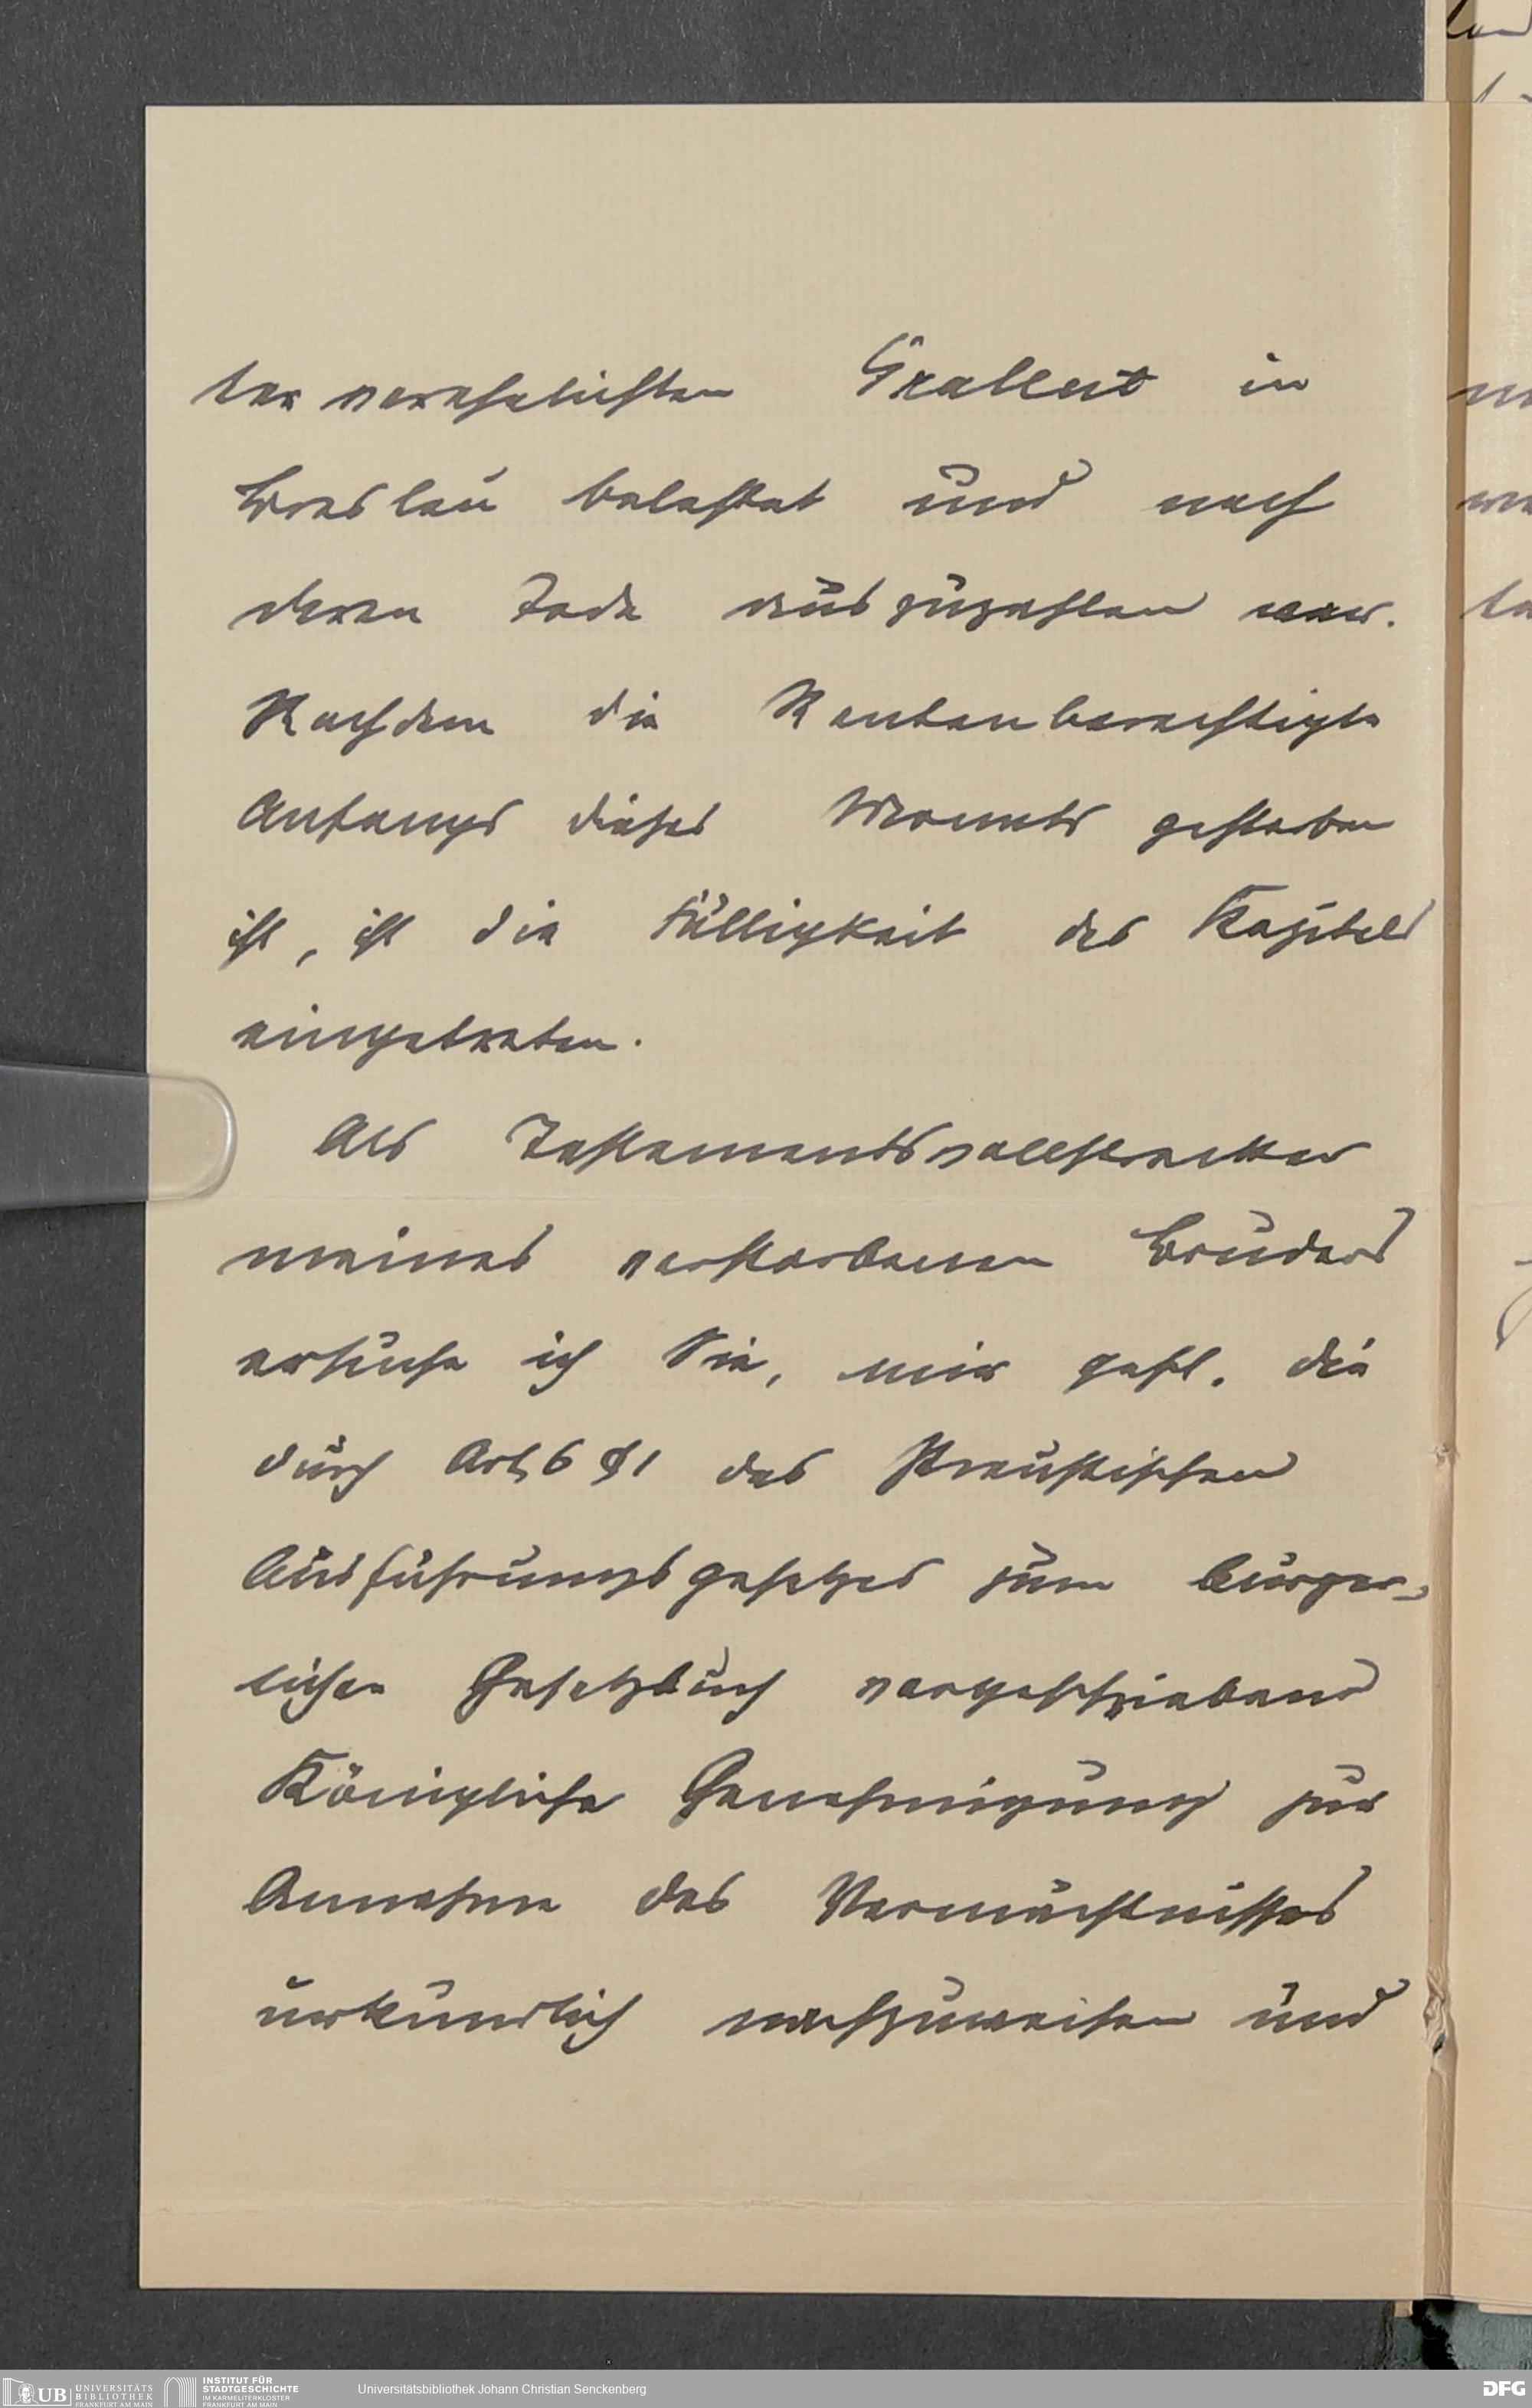 ter verehelichten Grallert in
Breslau belastet und nach
deren Tode auszuzahlen war.
Nachdem die Rentenberechtigte
Anfangs dieses Monats gestorben
ist, ist die Fälligkeit des Kapitals
eingetreten.
Als Testamentsvollstrecker
meines verstorbenen Bruders
ersuche ich Sie, mir gefl. die
durch Art. 6 § 1 des Preußischen
Ausführungsgesetzes zum bürger-
lichen Gesetzbuch vorgeschriebene
Königliche Genehmigung zur
Annahme des Vermächtnisses
urkundlich nachzuweisen und
UB UNIVERSITÄTS BIBLIOTHEK FRANKFURT AM MAIN
INSTITUT FÜR STADTGESCHICHTE IM KARMELITERKLOSTER FRANKFURT AM MAIN
Universitätsbibliothek Johann Christian Senckenberg
DFG